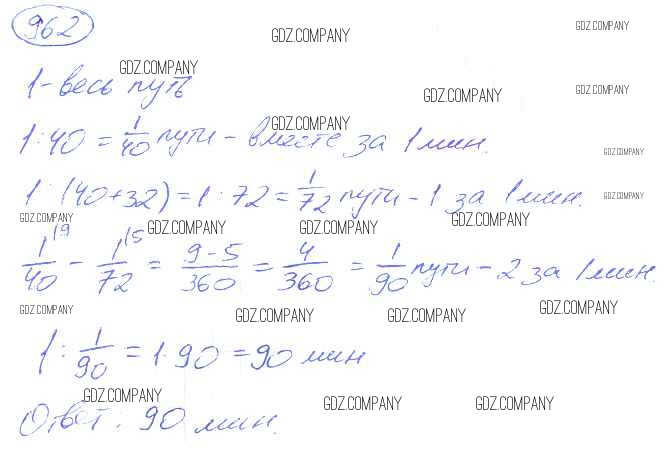 962
GDZ.COMPANY
GDZ.COMPANY
GDZ.COMPANY
1 - весь путь
GDZ.COMPANY
GDZ.COMPANY
GDZ.COMPANY
1 : 40 = 1/40 пути - вместе за 1 мин.
GDZ.COMPANY
1 : (40+32) = 1 : 72 = 1/72 пути - 1 за 1 мин.
GDZ.COMPANY
GDZ.COMPANY
GDZ.COMPANY
GDZ.COMPANY
GDZ.COMPANY
1/40 \9 - 1/72 \5 = 9-5/360 = 4/360 = 1/90 пути - 2 за 1 мин.
GDZ.COMPANY
GDZ.COMPANY
GDZ.COMPANY
GDZ.COMPANY
1 : 1/90 = 1 · 90 = 90 мин
GDZ.COMPANY
GDZ.COMPANY
GDZ.COMPANY
Ответ: 90 мин.